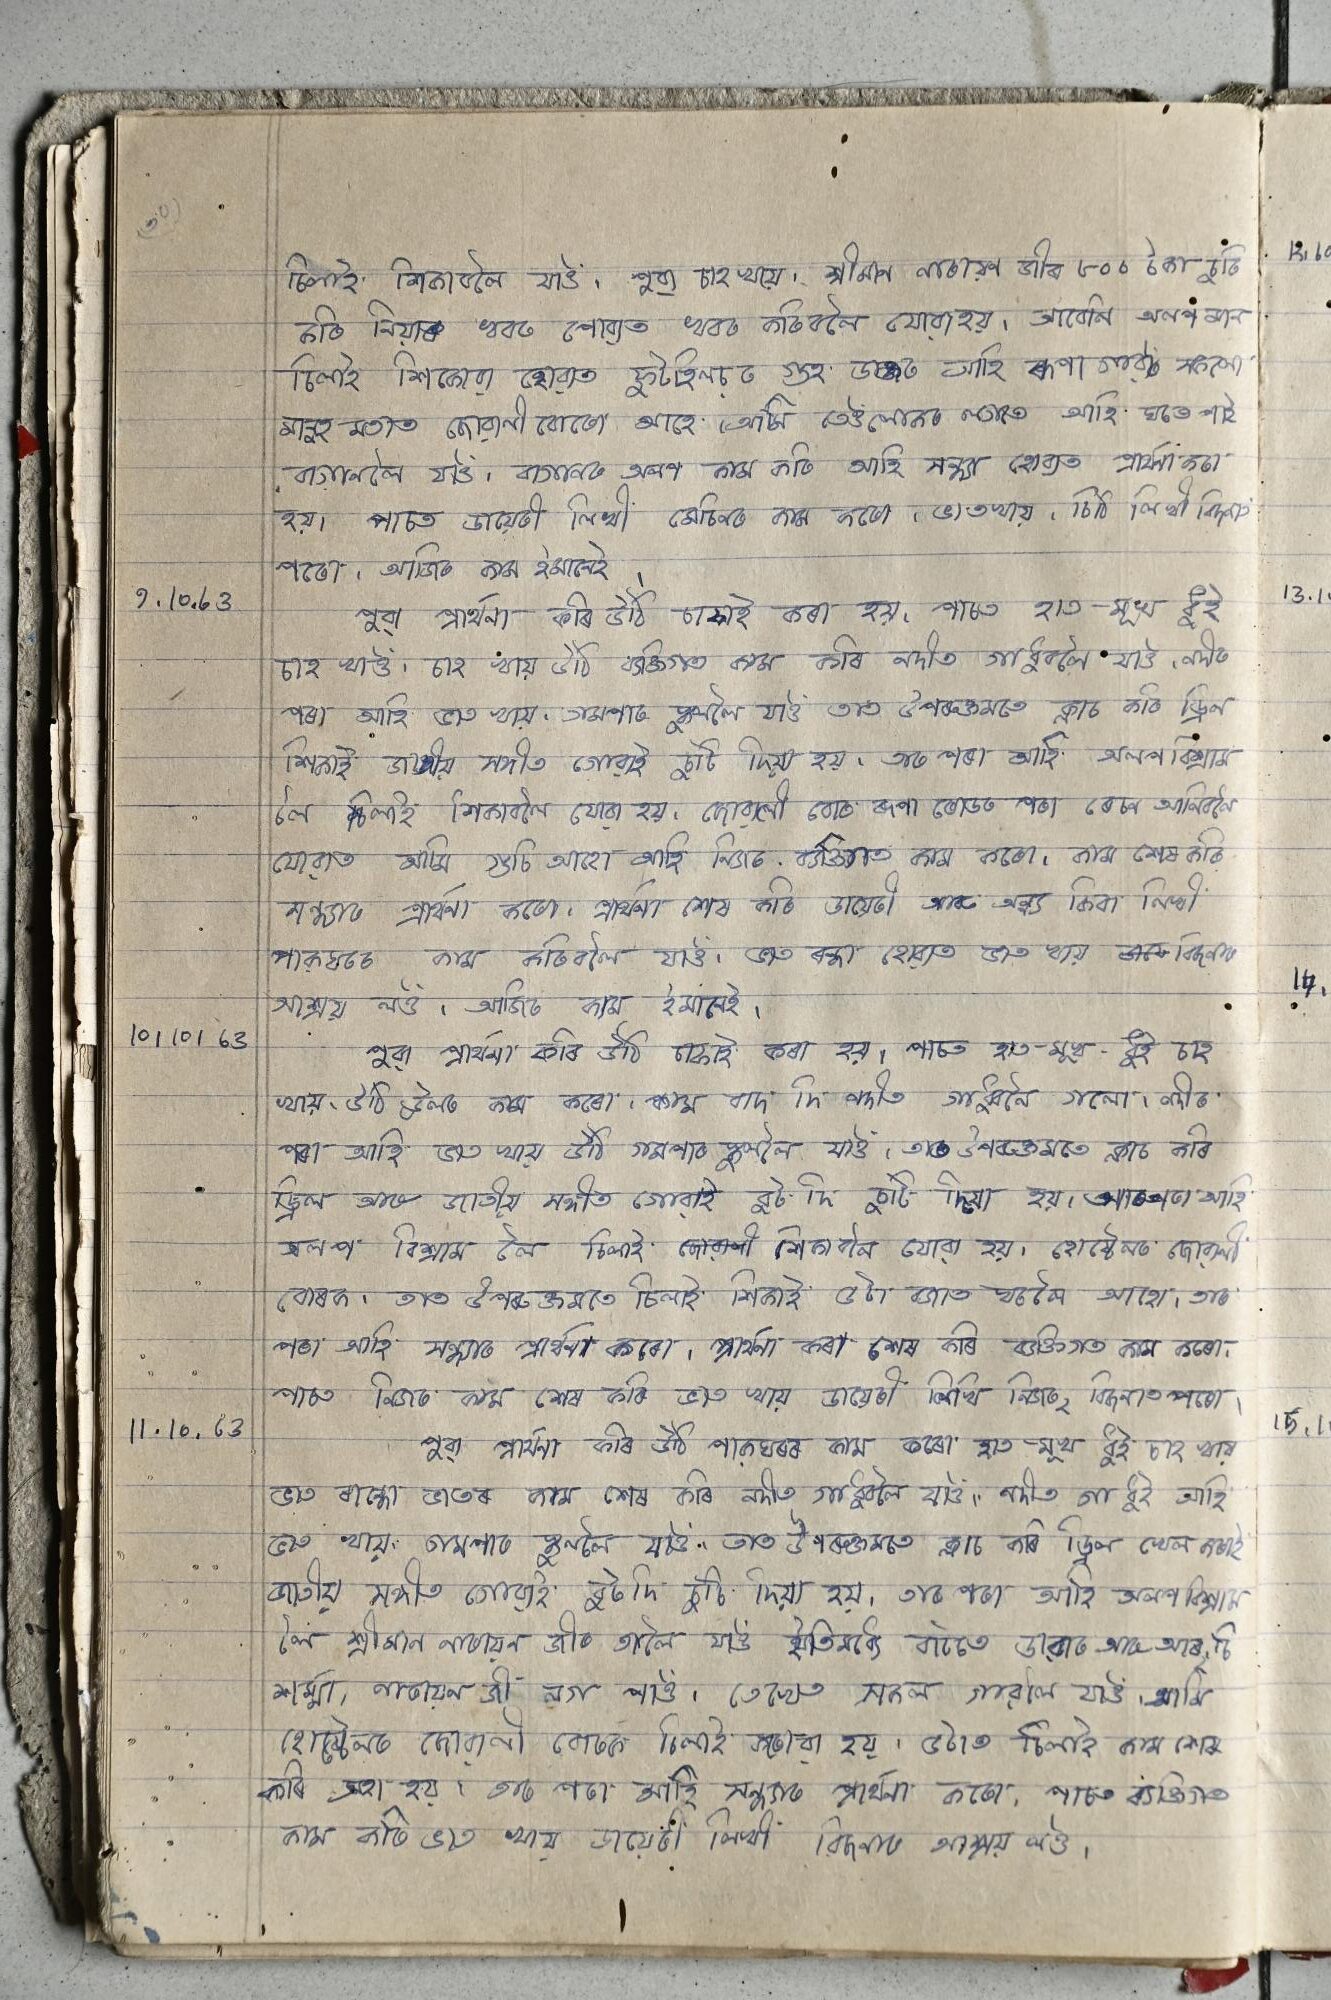 চিলাই শিকাবলৈ যাওঁ। পুৱা চাহ খায়। শ্ৰীমান নাৰায়ণ জীৰ ৮০৫ টকা চুৰি
কৰি নিয়াৰ খবৰ পোৱাত খবৰ কৰিবলৈ যোৱা হয়। আবেলি অলপমান
চিলাই শিকোৱা হোৱাত ফুটহিলচৰ গুহ ডাক্তৰ আহি ৰূপা গাৱঁৰ সকলো
মানুহ মতাত জোৱানী বোৰো আহে। আমি তেওঁলোকৰ লগতে আহি ঘৰে পাই
বাগানলৈ যাওঁ। বাগানৰ অলপ কাম কৰি আহি সন্ধ্যা হোৱাত প্ৰাৰ্থনা কৰা
হয়। পাচত ডায়েৰী লিখী মেচিনৰ কাম কৰো। ভাতখায়। চিঠি লিখী বিছনাত
পৰো। আজিৰ কাম ইমানেই।
9.10.63 পুৱা প্ৰাৰ্থনা কৰি উঠি চাফাই কৰা হয়। পাচত হাত-মূখ ধুই
চাহ খাওঁ। চাহ খায় উঠি ব্যক্তিগত কাম কৰি নদীত গা ধুবলৈ যাওঁ। নদীৰ
পৰা আহি ভাত খায়। তাৰপাচ স্কুললৈ যাওঁ তাত উপৰুক্তমতে ক্লাচ কৰি ড্ৰিল
শিকাই জাতীয় সঙ্গীত গোৱাই চুটি দিয়া হয়। তাৰ পৰা আহি অলপ বিশ্ৰাম
লৈ চিলাই শিকাবলৈ যোৱা হয়। জোৱানী বোৰ ৰূপা ৰোডৰ পৰা ৰেচন আনিবলৈ
যোৱাত আমি গুচি আহো আহি নিজৰ ব্যক্তিগত কাম কৰো। কাম শেষ কৰি
সন্ধ্যাত প্ৰাৰ্থনা কৰো। প্ৰাৰ্থনা শেষ কৰি ডায়েৰী আৰু অন্য কিবা লিখী
পাকঘৰত কাম কৰিবলৈ যাওঁ। ভাত ৰন্ধা হোৱাত ভাত খায় বিছনাত
আশ্ৰয় লওঁ। আজিৰ কাম ইমানেই।
10।10।63 পুৱা প্ৰাৰ্থনা কৰি উঠি চাফাই কৰা হয়। পাচত হাত-মূখ ধুই চাহ
খায়। উঠি উলৰ কাম কৰো। কাম বাদ দি নদীত গা ধুবলৈ গলো। নদীৰ
পৰা আহি ভাত খায় উঠি তাৰপাচ স্কুললৈ যাওঁ। তাত উপৰুক্তমতে ক্লাচ কৰি
ড্ৰিল আৰু জাতীয় সঙ্গীত গোৱাই বুট দি চুটি দিয়া হয়। তাৰপৰা আহি
অলপ বিশ্ৰাম লৈ চিলাই জোৱানী শিকাবলৈ যোৱা হয়। হোষ্টেলৰ জোৱানী
বোৰক। তাত উপৰুক্তমতে চিলাই শিকাই ৫টা বজাত ঘৰলৈ আহো। তাৰ
পৰা আহি সন্ধ্যাত প্ৰাৰ্থনা কৰো। প্ৰাৰ্থনা কৰা শেষ কৰি ব্যক্তিগত কাম কৰো।
পাচত নিজৰ কাম শেষ কৰি ভাত খায় ডায়েৰী লিখি নিজৰ বিছনাত পৰো।
11.10.63 পুৱা প্ৰাৰ্থনা কৰি উঠি পাকঘৰৰ কাম কৰো হাত-মূখ ধুই চাহ খায়
ভাত ৰান্ধো ভাতৰ কাম শেষ কৰি নদীত গা ধুবলৈ যাওঁ। নদীত গা ধুই আহি
ভাত খায়। তাৰপাচ স্কুললৈ যাওঁ। তাত উপৰুক্তমতে ক্লাচ কৰি ড্ৰিল খেল কৰাই
জাতীয় সঙ্গীত গোৱাই বুটদি চুটি দিয়া হয়। তাৰ পৰা আহি অলপ বিশ্ৰাম
লৈ শ্ৰীমান নাৰায়ন জীৰ তালৈ যাওঁ ইতিমধ্যে বাটতে আৰু আৰ, চি
শৰ্ম্মা, নাৰায়ন জী লগ পাওঁ। তেখেত সকল গাৱঁলৈ যাওঁ। আমি
হোষ্টেলৰ জোৱানী বোৰক চিলাই হয়। ৫টাত চিলাই কাম শেষ
কৰি অহা হয়। তাৰ পৰা আহি সন্ধ্যাত প্ৰাৰ্থনা কৰো। পাচত ব্যক্তিগত
কাম কৰি ভাত খায় ডায়েৰী লিখী বিছনাত আশ্ৰয় লওঁ।